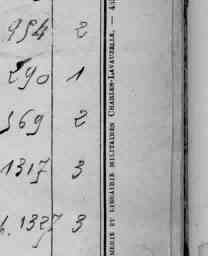 954 2
290 1
369 2
1317 3
1337 3
MERIE ET LIBRAIRIE MILITAIRES CHARLES-LAVAUZELLE, —